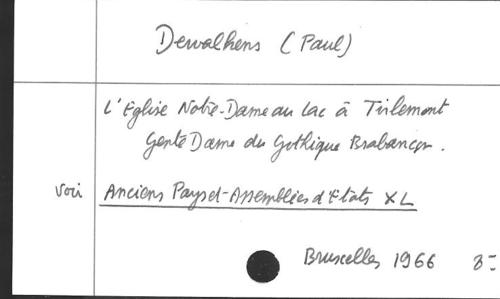 Dewalhens (Paul)
L'Eglise Notre-Dame au lac à Tirlemont
Gente Dame du Gothique Brabançon.
Voir Anciens Pays et Assemblées d'Etats XL
Bruxelles 1966 8-